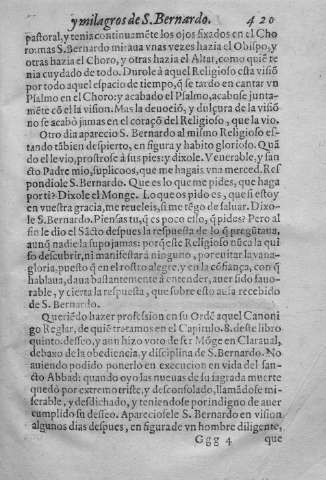 y milagros de S. Bernardo. 420
pastoral, y tenia continuamẽte los ojos fixados en el Cho
ro: mas S. Bernardo miraua vnas vezes hazia el Obispo, y
otras hazia el Choro, y otras hazia el Altar, como quiẽ te
nia cuydado de todo. Durole à aquel Religioso esta visiõ
por todo aquel espacio de tiempo, q̃ se tardo en cantar vn
Psalmo en el Choro: y acabado el Psalmo, acabose junta-
mẽte cõ el la vision. Mas la deuociõ, y dulçura de la visiõ
no se acabò jamas en el coraçõ del Religioso, que la vio.
Otro dia aparecio S. Bernardo al mismo Religioso es-
tando tãbien despierto, en figura y habito glorioso. Quã
do el le vio, prostrose à sus pies: y dixole. Venerable, y san
cto Padre mio, suplicoos, que me hagais vna merced. Res
pondiole S. Bernardo. Que es lo que me pides, que haga
por ti? Dixole el Monge. Lo que os pido es, que si estoy
en vuestra gracia, me reueleis, si me tẽgo de saluar. Dixo-
le S. Bernardo. Piensas tu, q̃ es poco esso, q̃ pides? Pero al
fin le dio el Sãcto despues la respuesta de lo q̃ pregũtaua,
aunq̃ nadie la supo jamas: porq̃ este Religioso nũca la qui
so descubrir, ni manifestar à ninguno, por euitar la vana-
gloria, puesto q̃ en el rostro alegre, y en la cõfiança, con q̃
hablaua, daua bastantemente à entender, auer sido fauo-
rable, y cierta la respuesta, que sobre esto auia recebido
de S. Bernardo.
Queriẽdo hazer profession en su Ordẽ aquel Canoni
go Reglar, de quiẽ tratamos en el Capitulo. 8. deste libro
quinto. desseo, y aun hizo voto de ser Mõge en Claraual,
debaxo de la obediencia, y disciplina de S. Bernardo. No
auiendo podido ponerlo en execucion en vida del san-
cto Abbad: quando oyo las nueuas de su sagrada muerte
quedò por extremo triste, y desconsolado, llamãdose mi-
serable, y desdichado, y teniendose por indigno de auer
cumplido su desseo. Apareciosele S. Bernardo en vision
algunos dias despues, en figura de vn hombre diligente,
Ggg 4 que